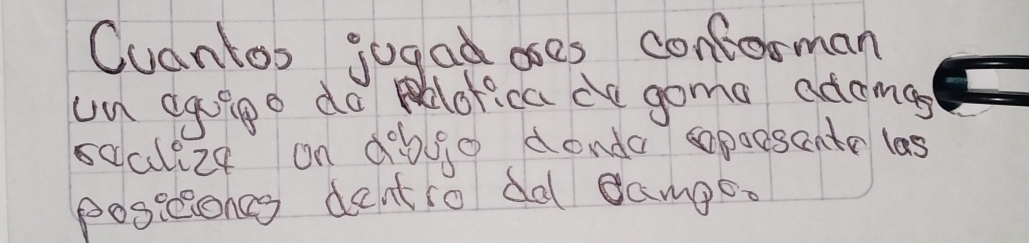 Cuantos jugadores conforman
un equipo de pelotica de goma ademas
realize un dibujo donde represente las
posiciones dentro del campo.